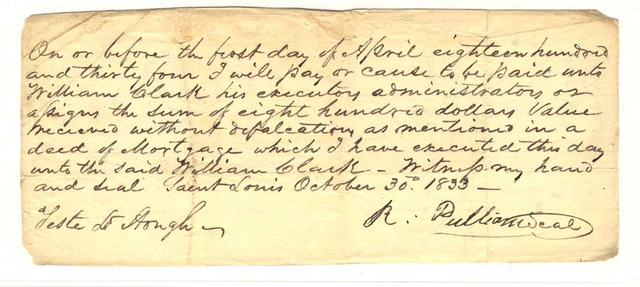 On or before the first day of April eighteen hundred
and thirty four I will pay or cause to be paid unto
William Clark his executors administrators or
assigns the sum of eight hundred dollars Value
recieved without defalcation, as mentioned in a
deed of Mortgage which I have executed this day
unto the said William Clark – Witness my hand
and seal Saint Louis October 30th 1833 –
Teste D Hough
R. Pulliam Seal